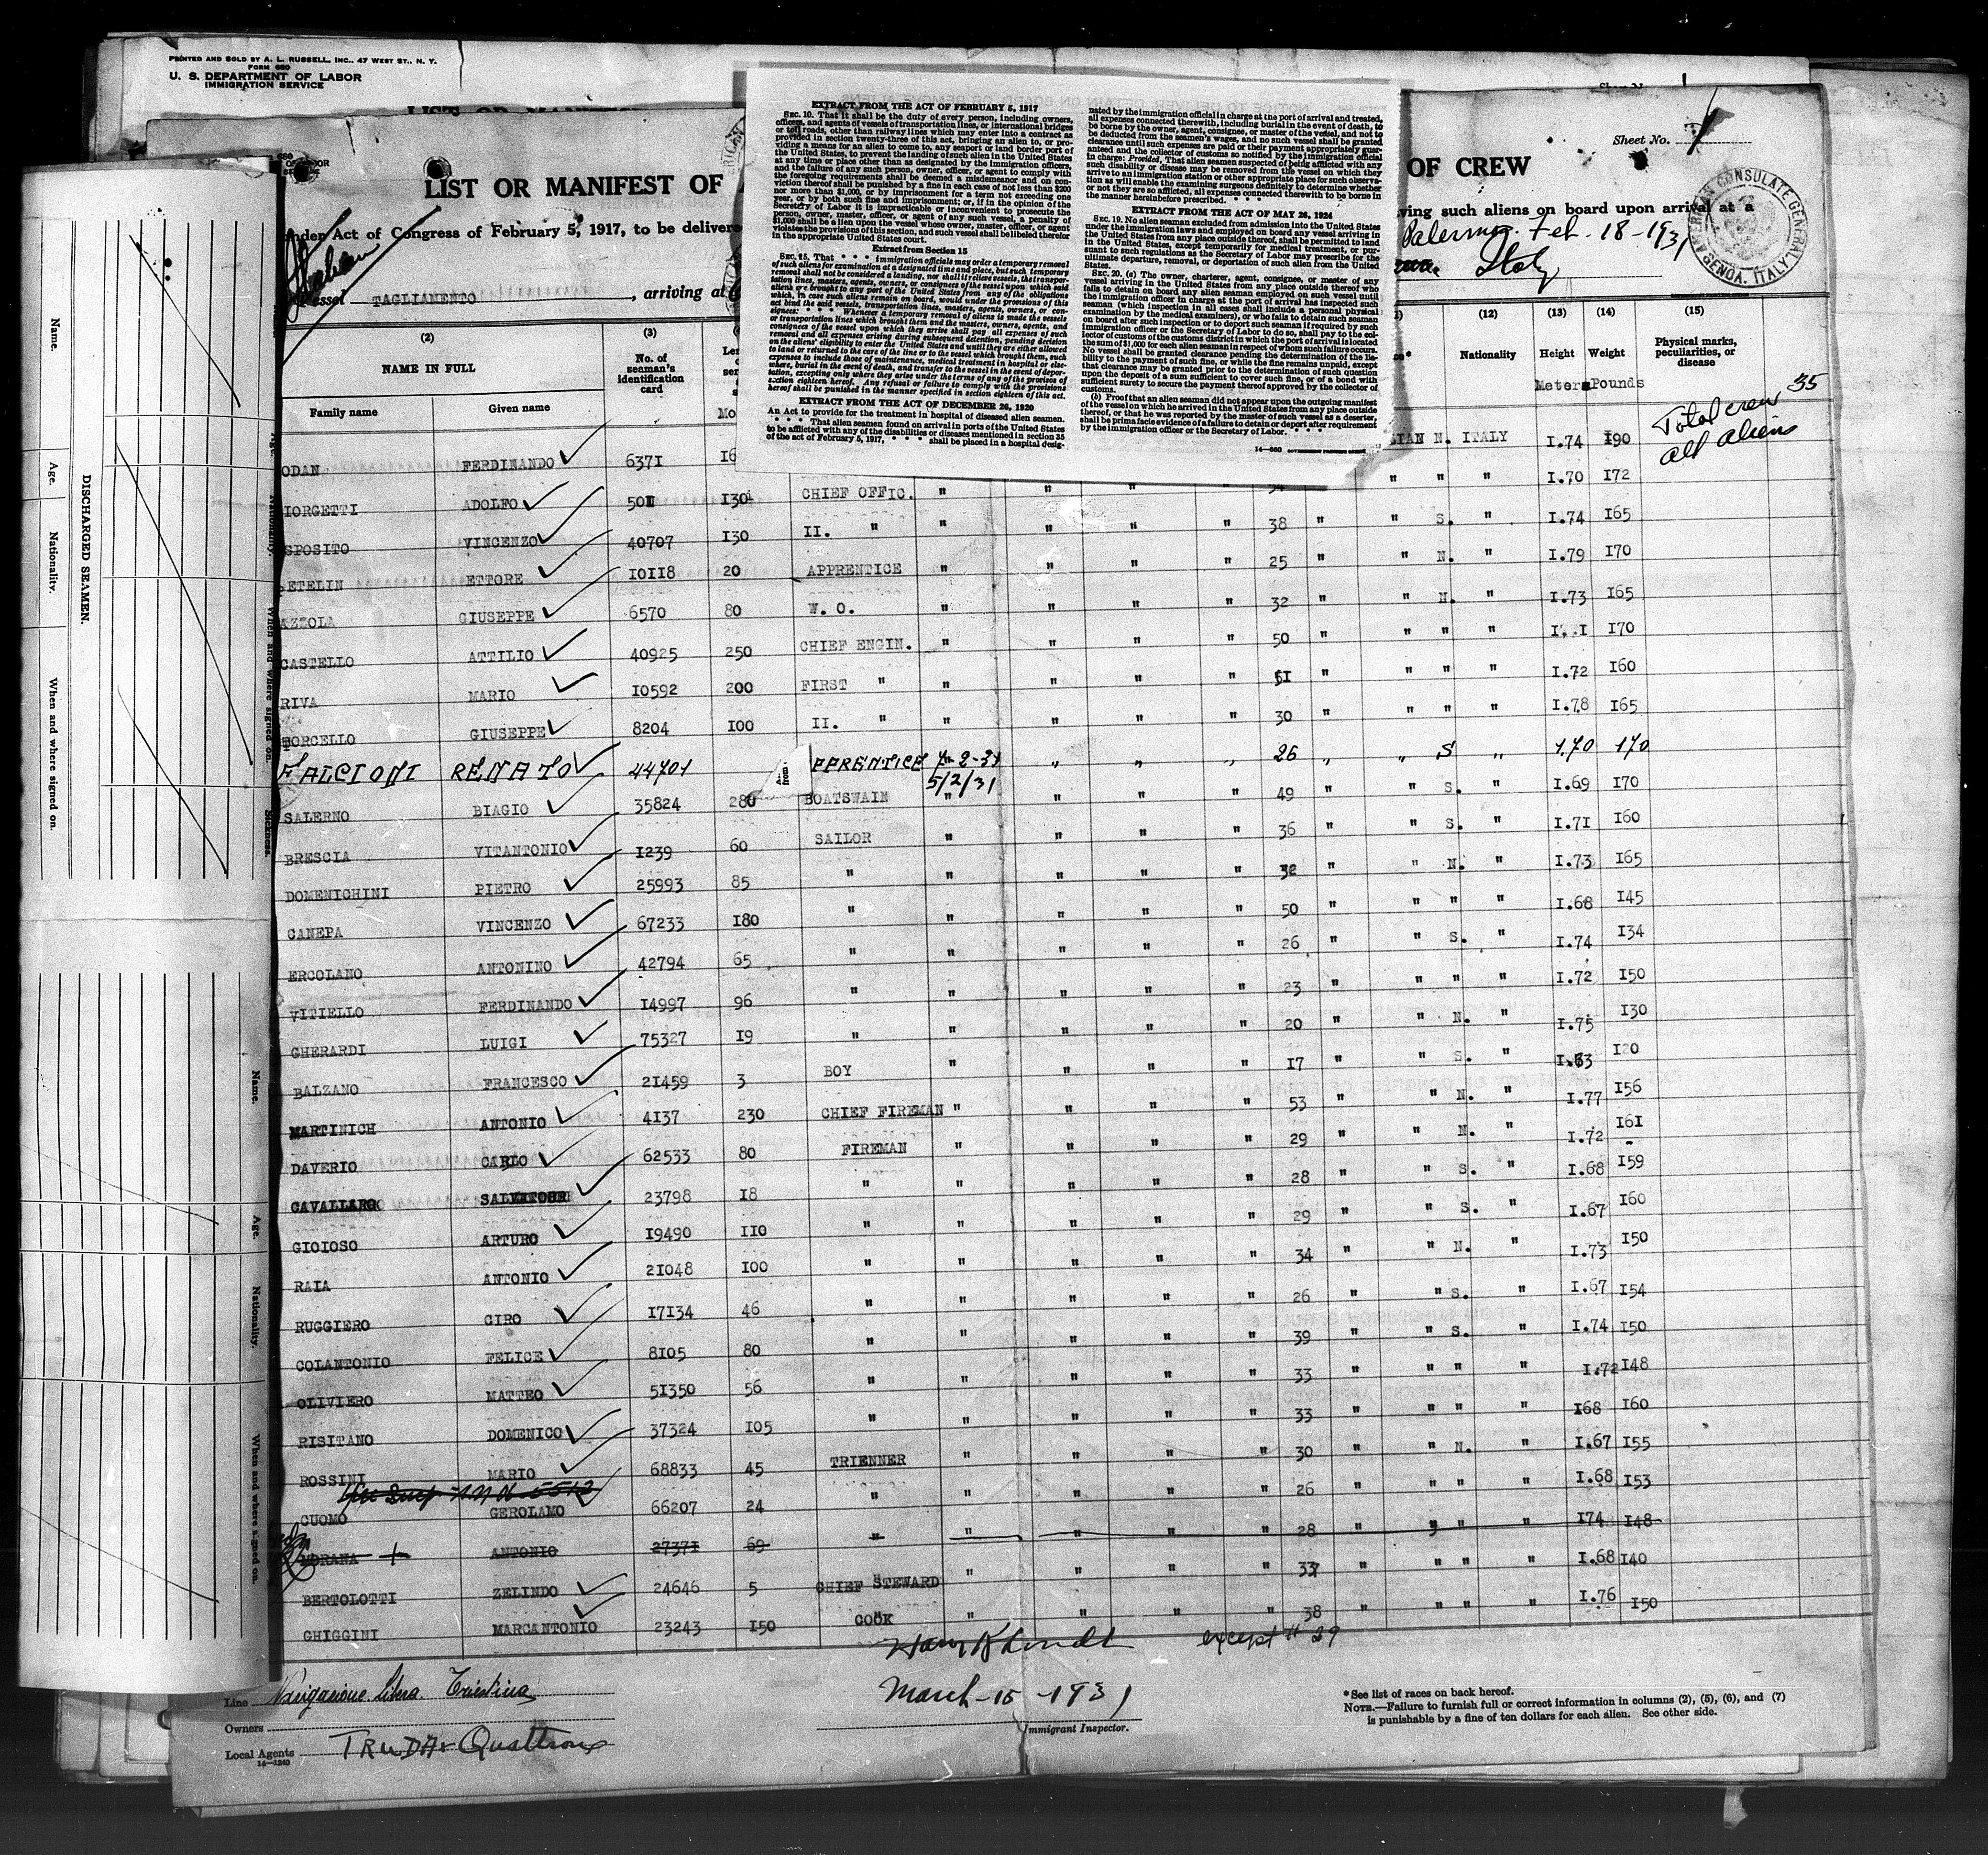 PRINTED AND SOLD BY A. L. RUSSELL, INC., 47 WEST ST., N. Y.
FORM 680
U. S. DEPARTMENT OF LABOR
IMMIGRATION SERVICE
Sheet No. 1
LIST OR MANIFEST OF
OF CREW
Under Act of Congress of February 5, 1917, to be delivere
ving such aliens on board upon arrival at a
Vessel TAGLIAMENTO, arriving at
Palermo. Feb - 18 - 1931
Italy
AMERICAN CONSULATE GENERAL GENOA, ITALY.
EXTRACT FROM THE ACT OF FEBRUARY 5, 1917
SEC. 10. That it shall be the duty of every person, including owners,
officers, and agents of vessels of transportation lines, or international bridges
or toll roads, other than railway lines which may enter into a contract as
provided in section twenty-three of this act, bringing an alien to, or pro-
viding a means for an alien to come to, any seaport or land border port of
the United States, to prevent the landing of such alien in the United States
at any time or place other than as designated by the immigration officers,
and the failure of any such person, owner, officer, or agent to comply with
the foregoing requirements shall be deemed a misdemeanor and on con-
viction thereof shall be punished by a fine in each case of not less than $200
nor more than $1,000, or by imprisonment for a term not exceeding one
year, or by both such fine and imprisonment; or, if in the opinion of the
Secretary of Labor it is impracticable or inconvenient to prosecute the
person, owner, master, officer, or agent of any such vessel, a penalty of
$1,000 shall be a lien upon the vessel whose owner, master, officer, or agent
violates the provisions of this section, and such vessel shall be libeled therefor
in the appropriate United States court.
Extract from Section 15
SEC. 15. That * * * immigration officials may order a temporary removal
of such aliens for examination at a designated time and place, but such temporary
removal shall not be considered a landing, nor shall it relieve vessels, the transpor-
tation lines, masters, agents, owners, or consignees of the vessel upon which said
aliens are brought to any port of the United States from any of the obligations
which, in case such aliens remain on board, would under the provisions of this
act bind the said vessels, transportation lines, masters, agents, owners, or con-
signees: * * * Whenever a temporary removal of aliens is made the vessels
or transportation lines which brought them and the masters, owners, agents, and
consignees of the vessel upon which they arrive shall pay all expenses of such
removal and all expenses arising during subsequent detention, pending decision
on the aliens' eligibility to enter the United States and until they are either allowed
to land or returned to the care of the line or to the vessel which brought them, such
expenses to include those of maintenance, medical treatment in hospital or else-
where, burial in the event of death, and transfer to the vessel in the event of depor-
tation, excepting only where they arise under the terms of any of the provisos of
section eighteen hereof. Any refusal or failure to comply with the provisions
hereof shall be punished in the manner specified in section eighteen of this act.
EXTRACT FROM THE ACT OF DECEMBER 26, 1920
An Act to provide for the treatment in hospital of diseased alien seamen.
* * * That alien seamen found on arrival in ports of the United States
to be afflicted with any of the disabilities or diseases mentioned in section 35
of the act of February 5, 1917, * * * shall be placed in a hospital desig-
nated by the immigration official in charge at the port of arrival and treated,
all expenses connected therewith, including burial in the event of death, to
be borne by the owner, agent, consignee, or master of the vessel, and not to
be deducted from the seamen's wages, and no such vessel shall be granted
clearance until such expenses are paid or their payment appropriately guar-
anteed and the collector of customs so notified by the immigration official
in charge: Provided, That alien seamen suspected of being afflicted with any
such disability or disease may be removed from the vessel on which they
arrive to an immigration station or other appropriate place for such observa-
tion as will enable the examining surgeons definitely to determine whether
or not they are so afflicted, all expenses connected therewith to be borne in
the manner hereinbefore prescribed. * * *
EXTRACT FROM THE ACT OF MAY 26, 1924
SEC. 19. No alien seaman excluded from admission into the United States
under the immigration laws and employed on board any vessel arriving in
the United States from any place outside thereof, shall be permitted to land
in the United States, except temporarily for medical treatment, or pur-
suant to such regulations as the Secretary of Labor may prescribe for the
ultimate departure, removal, or deportation of such alien from the United
States.
SEC. 20. (a) The owner, charterer, agent, consignee, or master of any
vessel arriving in the United States from any place outside thereof who
fails to detain on board any alien seaman employed on such vessel until
the immigration officer in charge at the port of arrival has inspected such
seaman (which inspection in all cases shall include a personal physical
examination by the medical examiners), or who fails to detain such seaman
on board after such inspection or to deport such seaman if required by such
immigration officer or the Secretary of Labor to do so, shall pay to the col-
lector of customs of the customs district in which the port of arrival is located
the sum of $1,000 for each alien seaman in respect of whom such failure occurs.
No vessel shall be granted clearance pending the determination of the lia-
bility to the payment of such fine, or while the fine remains unpaid, except
that clearance may be granted prior to the determination of such question
upon the deposit of a sum sufficient to cover such fine, or of a bond with
sufficient surety to secure the payment thereof approved by the collector of
customs.
(b) Proof that an alien seaman did not appear upon the outgoing manifest
of the vessel on which he arrived in the United States from any place outside
thereof, or that he was reported by the master of such vessel as a deserter,
shall be prima facie evidence of a failure to detain or deport after requirement
by the immigration officer or the Secretary of Labor. * * *
14—680 GOVERNMENT PRINTING OFFICE
(2) (3) (12) (13) (14) (15)
NAME IN FULL
No. of seaman's identification card
Nationality Height Weight Physical marks, peculiarities, or disease
Family name Given name
Meters Pounds
35
Total crew
all aliens
ODAN FERDINANDO 6371 IAN N. ITALY I.74 I90
IORGETTI ADOLFO 50II I30 CHIEF OFFIC. " " " 34 " " " I.70 I72
SPOSITO VINCENZO 40707 I30 II. " " " " " 38 " " S. " I.74 I65
ETELIN ETTORE I0II8 20 APPRENTICE " " " " 25 " " N. " I.79 I70
AZZOLA GIUSEPPE 6570 80 W. O. " " " " 32 " " N. " I.73 I65
CASTELLO ATTILIO 40925 250 CHIEF ENGIN. " " " " 50 " " " " I70
RIVA MARIO I0592 200 FIRST " " " " " 5I " " " " I.72 I60
TORCELLO GIUSEPPE 8204 I00 II. " " " " " 30 " " " " I.78 I65
FALCIONI RENATO 44701 PPRENTICE 5/2/31 " " " 26 " " S " 1.70 170
SALERNO BIAGIO 35824 280 BOATSWAIN " " " " 49 " " S. " I.69 I70
BRESCIA VITANTONIO I239 60 SAILOR " " " " 36 " " S. " I.71 I60
DOMENICHINI PIETRO 25993 85 " " " " " 32 " " N. " I.73 I65
CANEPA VINCENZO 67233 I80 " " " " " 50 " " " " I.68 I45
ERCOLANO ANTONINO 42794 65 " " " " " 26 " " S. " I.74 I34
VITIELLO FERDINANDO I4997 96 " " " " " 23 " " " " I.72 I50
GHERARDI LUIGI 75327 I9 " " " " " 20 " " N. " I.75 I30
BALZANO FRANCESCO 2I459 3 BOY " " " " I7 " " S. " I.63 I20
MARTINICH ANTONIO 4I37 230 CHIEF FIREMAN " " " " 53 " " N. " I.77 I56
DAVERIO CARLO 62533 80 FIREMAN " " " " 29 " " N. " I.72 I6I
CAVALLARO SALVATORE 23798 I8 " " " " " 28 " " S. " I.68 I59
GIOIOSO ARTURO I9490 II0 " " " " " 29 " " S. " I.67 I60
RAIA ANTONIO 2I048 I00 " " " " " 34 " " N. " I.73 I50
RUGGIERO CIRO I7I34 46 " " " " " 26 " " S. " I.67 I54
COLANTONIO FELICE 8I05 80 " " " " " 39 " " S. " I.74 I50
OLIVIERO MATTEO 5I350 56 " " " " " 33 " " " " I.72 I48
RISITANO DOMENICO 37324 I05 " " " " " 33 " " " " I68 I60
ROSSINI MARIO 68833 45 TRIENNER " " " " 30 " " N. " I.67 I55
CUOMO GEROLAMO 66207 24 " " " " " 26 " " " " I.68 I53
MORANA + ANTONIO 2737I 69 " " " " " 28 " " " I74 I48
BERTOLOTTI ZELINDO 24646 5 CHIEF STEWARD " " " " 33 " " " " I.68 I40
GHIGGINI MARCANTONIO 23243 I50 COOK " " " " 38 " " " " I.76 I50
except # 29
Line Navigazione Libera Triestina
March - 15 - 1931
Owners
Immigrant Inspector.
Local Agents TRUDA & Quattrone
14—1240
*See list of races on back hereof.
NOTE.—Failure to furnish full or correct information in columns (2), (5), (6), and (7)
is punishable by a fine of ten dollars for each alien. See other side.
DISCHARGED SEAMEN.
Name.
Age.
Nationality.
When and where signed on.
Sickness.
Name.
Age.
Nationality.
When and where signed on.